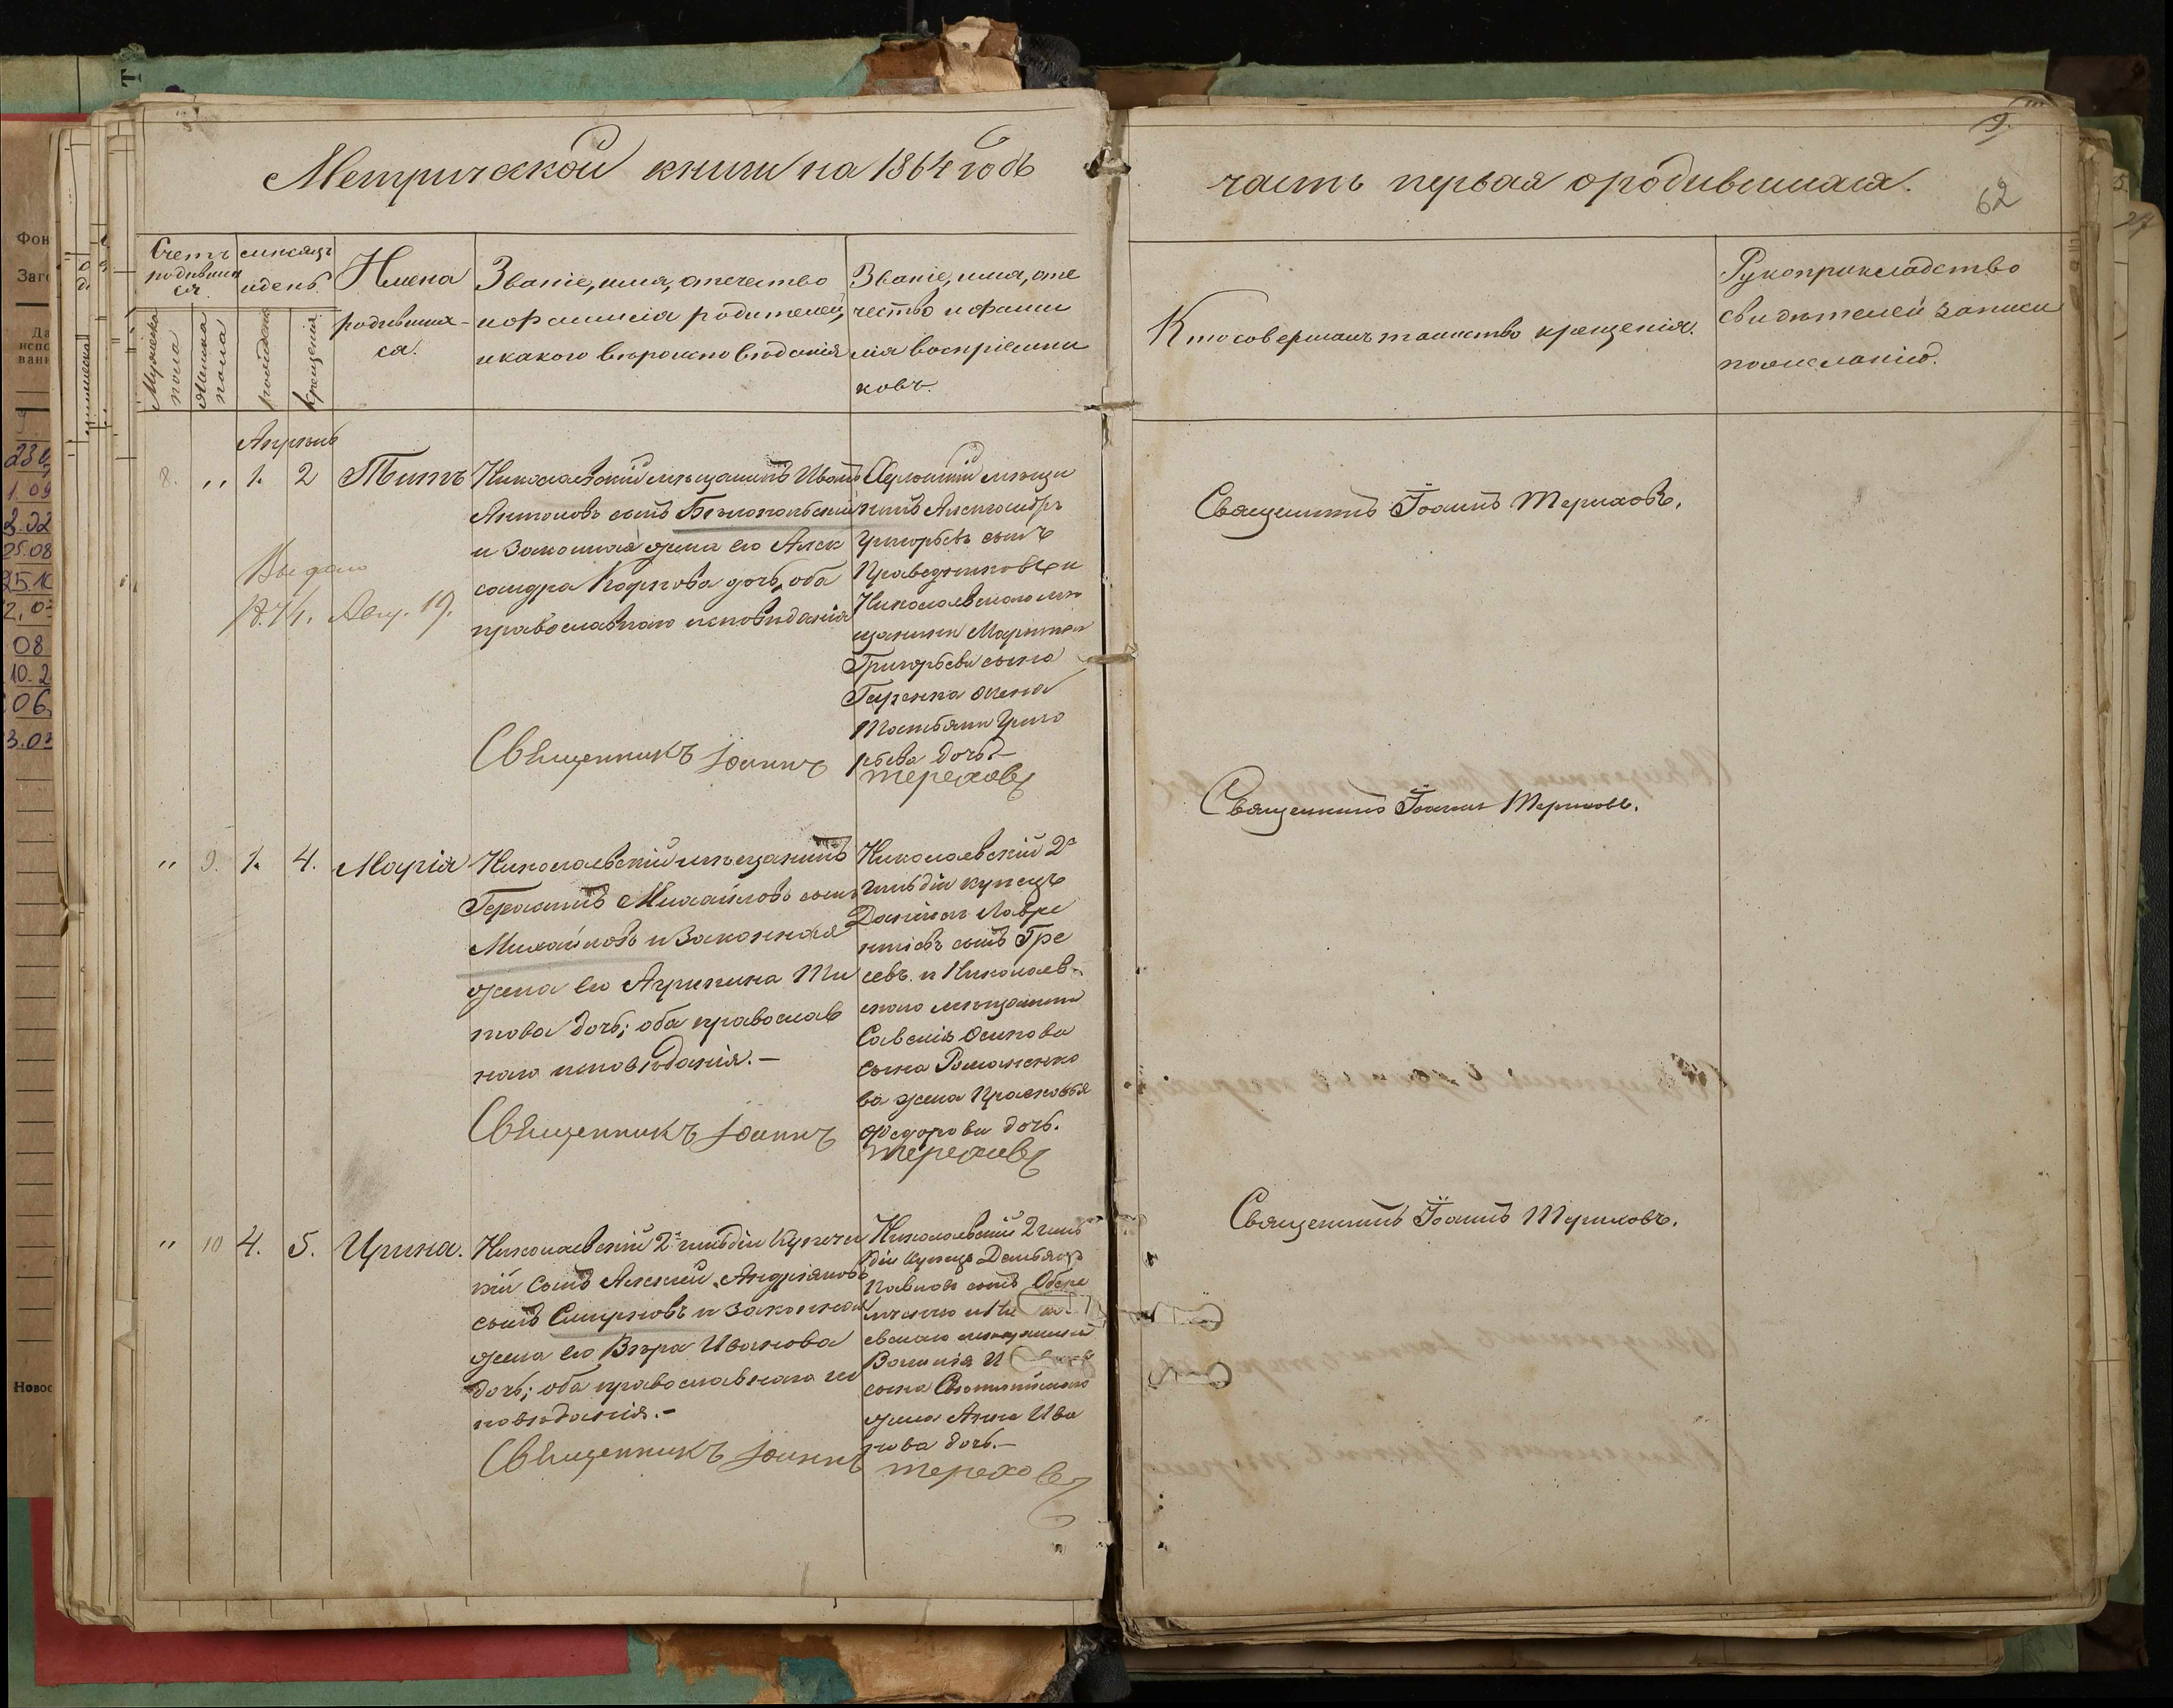 Метрической книги на 1864 годъ
часть первая о родившихся.
62
Счетъ родившихся
Мужеска пола
Женска пола
месяцъ и день
рожденія
крещенія
Имена
родивших-
ся.
Званіе, имя, отечество
и фамилія родителей,
и какого вѣроисповѣданія
Званіе, имя, оте
чество и фами
лія воспріемни
ковъ.
Кто совершалъ таинство крещенія.
Рукоприкладство
свидѣтелей записи
по желанію.
Апрѣль
8. „ 1. 2 Титъ
Николаевскій мѣщанинъ Иванъ
Антоновъ сынъ Бѣлопольскій
и законная жена его Алек
сандра Карпова дочь, оба
православнаго исповѣданія
мѣщи
нинъ Александръ
Григорьевъ сынъ
Праведниковъ и
Николаевскаго мѣ
щанина Мартина
Григорьева сына
жена
Татьяна Григо
рьева дочь.—
Выдано
1871. Авг. 19.
Священникъ Іоаннъ Тереховъ
Священникъ Іоаннъ Тереховъ.
„ 9. 1. 4. Марія
Николаевскій мѣщанинъ
Герасимъ Михайловъ сынъ
Михайловъ и законная
жена его Агрипина Ти
това дочь; оба православ
наго исповѣданія.—
Николаевскій 2й
гильдіи купецъ
Даніилъ Лавре
нтіевъ сынъ Гре
севъ. и Николаев-
скаго мѣщанина
Савелія Осипова
сына Романенко
ва жена Прасковья
Федорова дочь.
Священникъ Іоаннъ Тереховъ
Священникъ Іоаннъ Тереховъ.
„ 10 4. 5. Ирина.
Николаевскій 2й гильдіи Купече
кій сынъ Алексей Андріяновъ
сынъ Смирновъ и законная
жена его Вѣра Иванова
дочь; оба православнаго ис
повѣданія.—
Николаевскій 2 гиль
діи купецъ Демьянъ
Павловъ сынъ
евскаго мѣщанина
сына
жена Анна Ива
нова дочь.—
Священникъ Іоаннъ Тереховъ
Священникъ Іоаннъ Тереховъ.